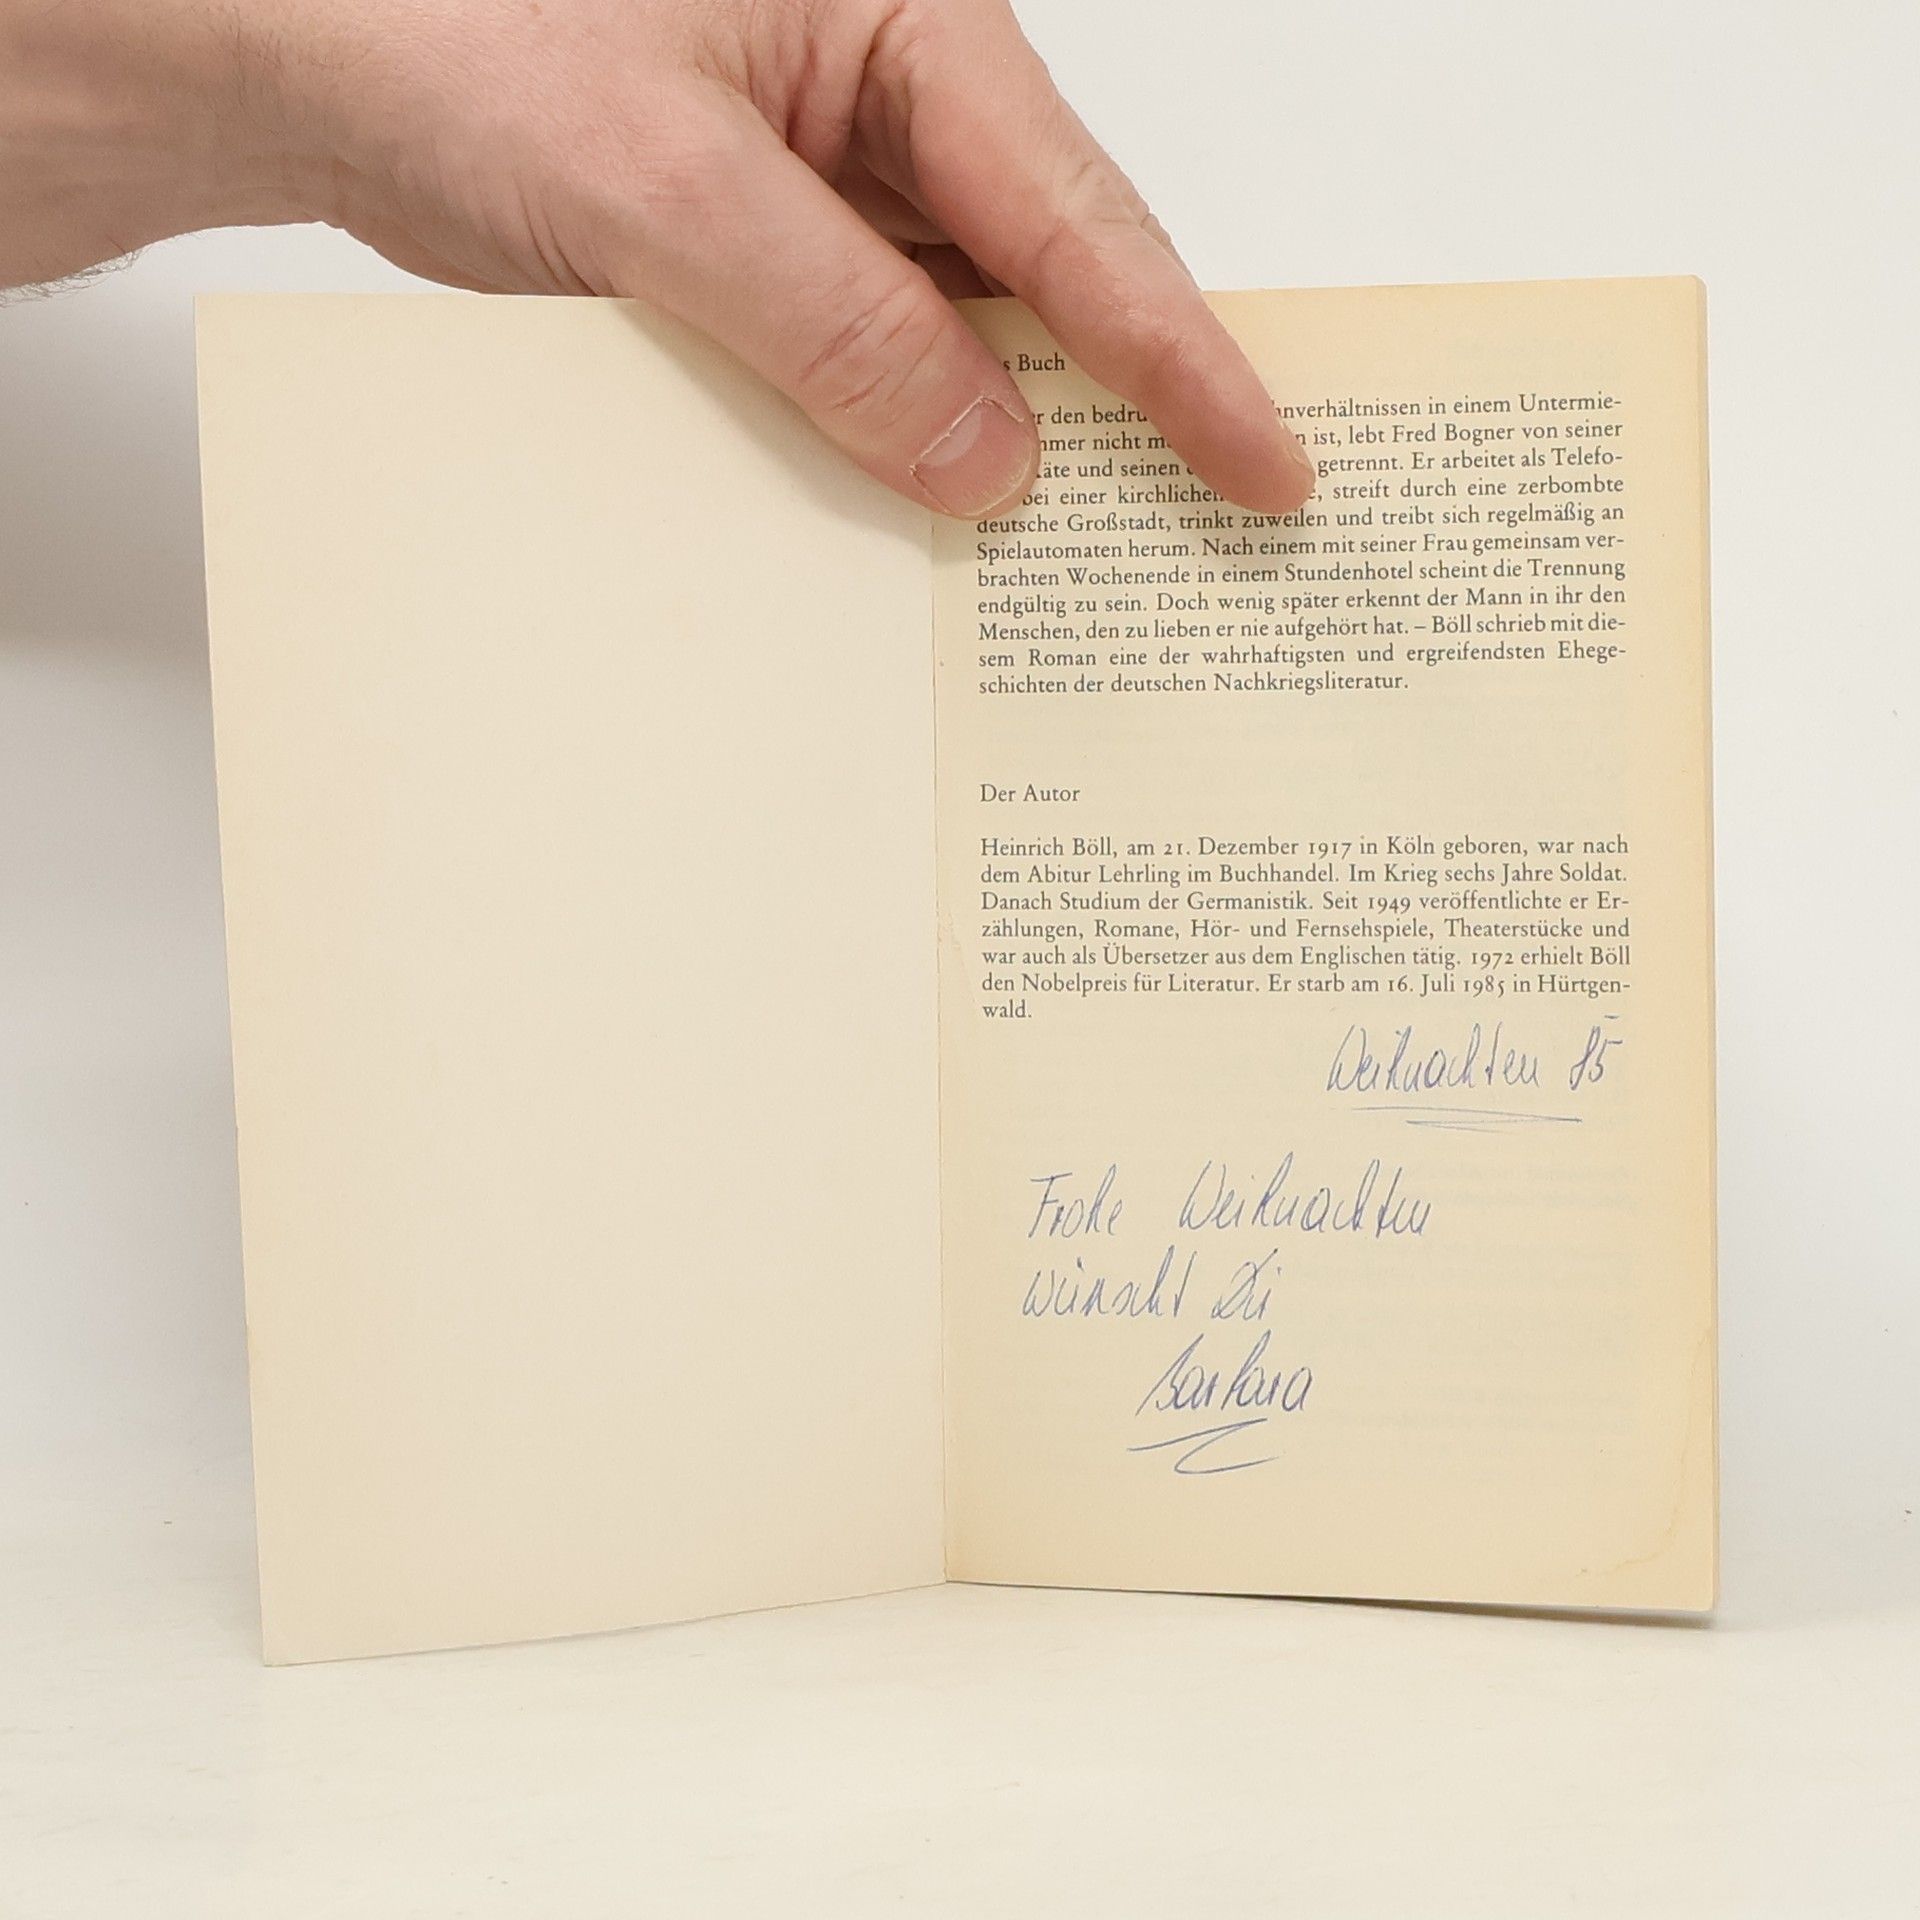 s Buch
r den bedru hnverhältnissen in einem Untermie-
mmer nicht m n ist, lebt Fred Bogner von seiner
äte und seinen getrennt. Er arbeitet als Telefo-
bei einer kirchlichen e, streift durch eine zerbombte
deutsche Großstadt, trinkt zuweilen und treibt sich regelmäßig an
Spielautomaten herum. Nach einem mit seiner Frau gemeinsam ver-
brachten Wochenende in einem Stundenhotel scheint die Trennung
endgültig zu sein. Doch wenig später erkennt der Mann in ihr den
Menschen, den zu lieben er nie aufgehört hat. – Böll schrieb mit die-
sem Roman eine der wahrhaftigsten und ergreifendsten Ehege-
schichten der deutschen Nachkriegsliteratur.
Der Autor
Heinrich Böll, am 21. Dezember 1917 in Köln geboren, war nach
dem Abitur Lehrling im Buchhandel. Im Krieg sechs Jahre Soldat.
Danach Studium der Germanistik. Seit 1949 veröffentlichte er Er-
zählungen, Romane, Hör- und Fernsehspiele, Theaterstücke und
war auch als Übersetzer aus dem Englischen tätig. 1972 erhielt Böll
den Nobelpreis für Literatur. Er starb am 16. Juli 1985 in Hürtgen-
wald.
Weihnachten 85
Frohe Weihnachten
wünscht Dir
Barbara